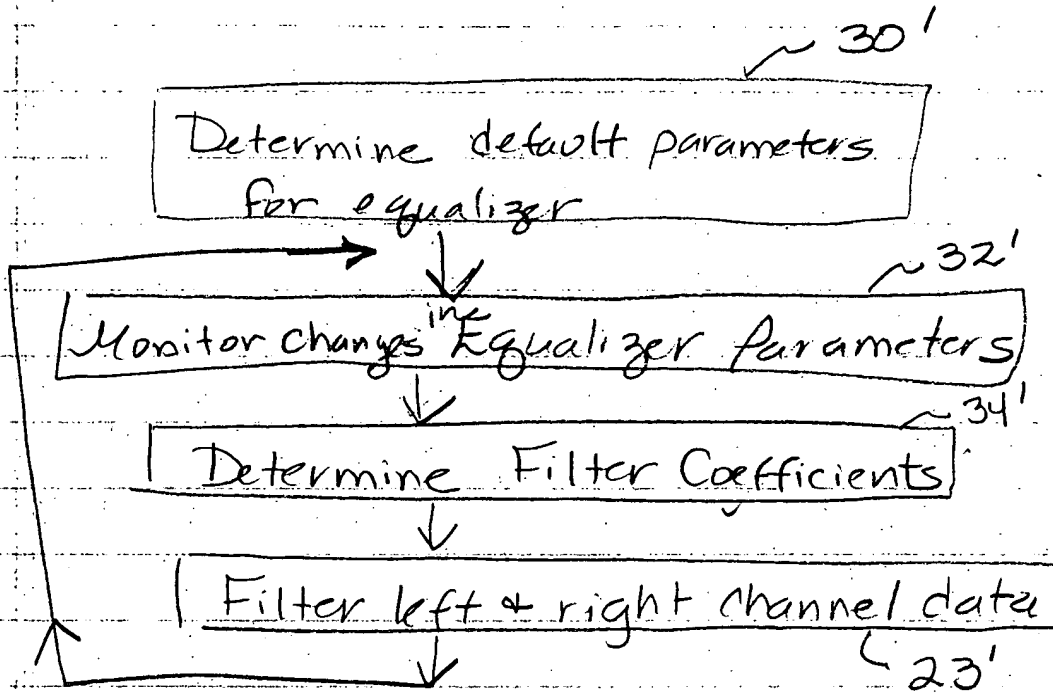 ~ 30'
Determine default parameters
for equalizer
~ 32'
Monitor changes in Equalizer Parameters
~ 34'
Determine Filter Coefficients
Filter left & right channel data
23'